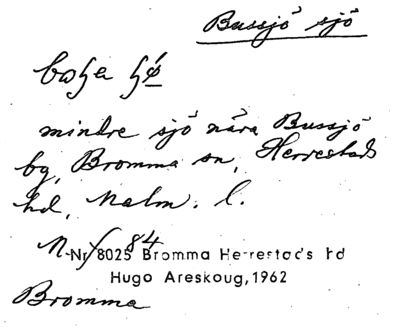 Bussjö sjö
mindre sjö nära Bussjö
by, Bromma sn, Herrestads
hd, Malm. l.
84
Nr 8025 Bromma Herrestads hd
Hugo Areskoug, 1962
Bromma